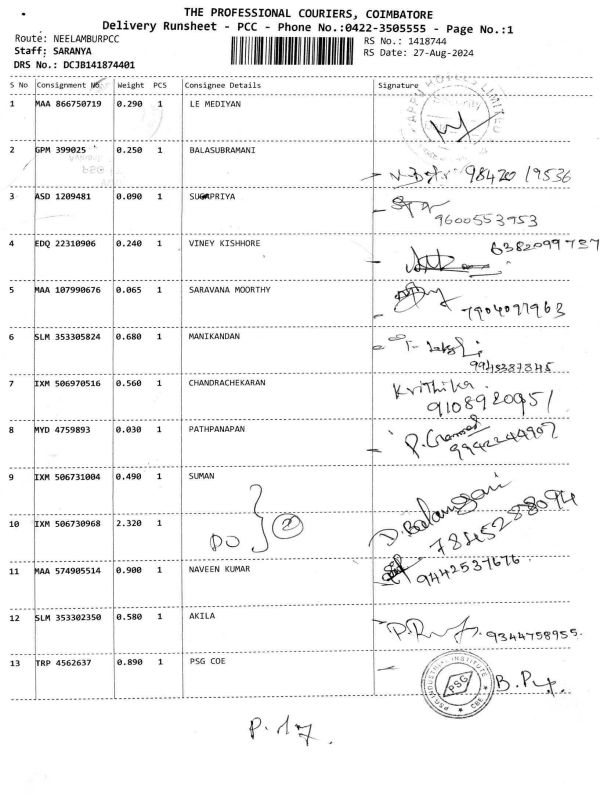 THE PROFESSIONAL COURIERS, COIMBATORE
Delivery Runsheet - PCC - Phone No.:0422-3505555 - Page No.:1
Route: NEELAMBURPCC RS No.: 1418744
Staff: SARANYA RS Date: 27-Aug-2024
DRS No.: DCJB141874401
S No Consignment No. Weight PCS Consignee Details Signature
1 MAA 866750719 0.290 1 LE MEDIYAN
2 GPM 399025 0.250 1 BALASUBRAMANI
98420 19536
3 ASD 1209481 0.090 1
9600553953
4 EDQ 22310906 0.240 1 VINEY KISHHORE
6382099737
5 MAA 107990676 0.065 1 SARAVANA MOORTHY
7904097963
6 SLM 353305824 0.680 1 MANIKANDAN
7 IXM 506970516 0.560 1 CHANDRACHEKARAN Krithika.
9108920951
8 MYD 4759893 0.030 1 PATHPANAPAN
9942244907
9 IXM 506731004 0.490 1 SUMAN
10 IXM 506730968 2.320 1 DO 2
7845288094
11 MAA 574905514 0.900 1 NAVEEN KUMAR 9442537676
12 SLM 353302350 0.580 1 AKILA 9344758955
13 TRP 4562637 0.890 1 PSG COE
PSG INDUSTRIAL INSTITUTE
PSG
CBE
P. 17